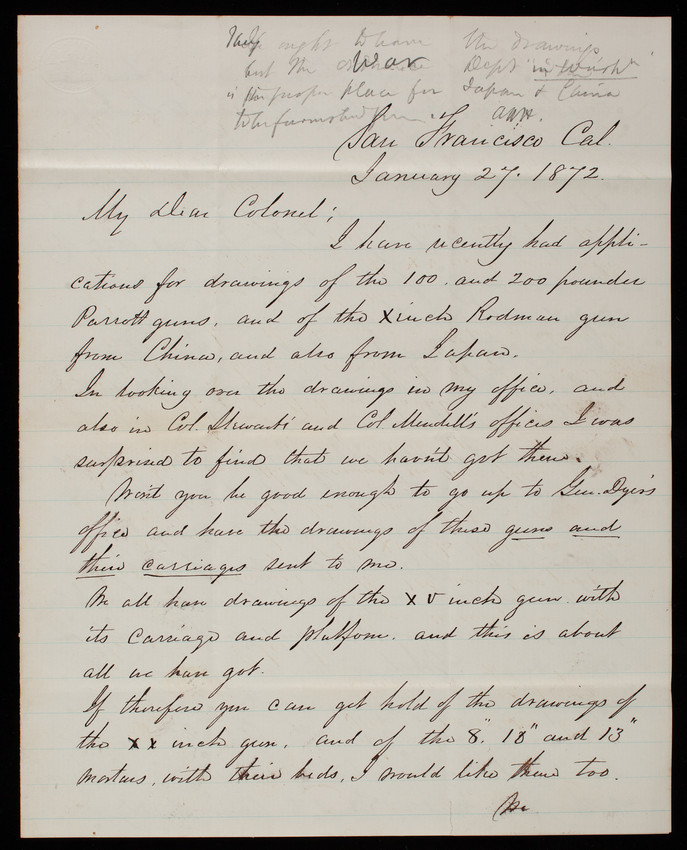 They ought to have the drawings
but the War Dept in
is the proper place for Japan & China
to be furnished
San Francisco Cal.
January 27. 1872.
My dear Colonel;
I have recently had appli-
cations for drawings of the 100. and 200 pounder
Parrott guns. and of the X inch Rodman gun
from China, and also from Japan.
In looking over the drawings in my office, and
also in Col. Stewart's and Col. Mendell's offices I was
surprised to find that we havn't got them.
Won't you be good enough to go up to Gen. Dyer's
office and have the drawings of these guns and
their carriages sent to me.
We all have drawings of the XV inch gun with
its carriage and platform. and this is about
all we have got.
If therefore you can get hold of the drawings of
the XX inch gun, and of the 8", 10" and 13"
mortars, with their beds, I would like them too.
We